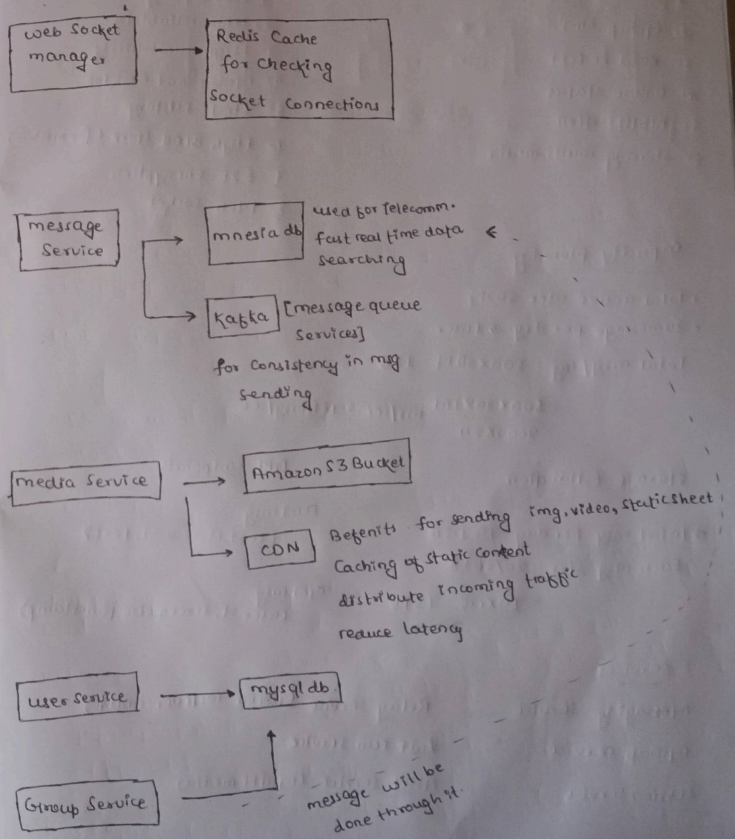 web socket
manager
Redis Cache
for checking
Socket Connections
message
Service
mnesia db
used for Telecomm.
fast real time data
searching
Kafka
[message queue
Services]
for consistency in msg
sending
media service
Amazon S3 Bucket
CDN
Befenits for sending img, video, static sheet
Caching of static content
distribute incoming traffic
reduce latency
user service
mysql db
Group Service
message will be
done through it.